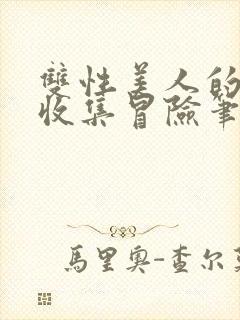 雙性美人的
收集冒險筆
馬里奧-查尔